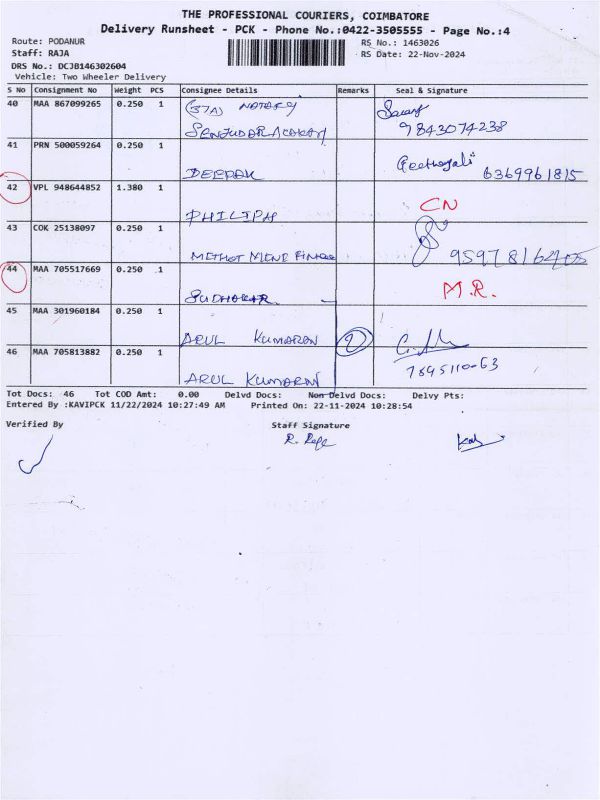 THE PROFESSIONAL COURIERS, COIMBATORE
Delivery Runsheet - PCK - Phone No.:0422-3505555 - Page No.:4
Route: PODANUR
RS No.: 1463026
Staff: RAJA
RS Date: 22-Nov-2024
DRS No.: DCJB146302604
Vehicle: Two Wheeler Delivery
S No Consignment No Weight PCS Consignee Details Remarks Seal & Signature
40 MAA 867099265 0.250 1 (STA) NOTARY
9843074238
41 PRN 500059264 0.250 1
DEEPAK 6369961815
42 VPL 948644852 1.380 1
PHILIPH CN
43 COK 25138097 0.250 1
44 MAA 705517669 0.250 1
SUDHAKAR M.R.
45 MAA 301960184 0.250 1
ARUL KUMARAN 2
46 MAA 705813882 0.250 1
ARUL KUMARAN
Tot Docs: 46 Tot COD Amt: 0.00 Delvd Docs: Non Delvd Docs: Delvy Pts:
Entered By :KAVIPCK 11/22/2024 10:27:49 AM Printed On: 22-11-2024 10:28:54
Verified By Staff Signature